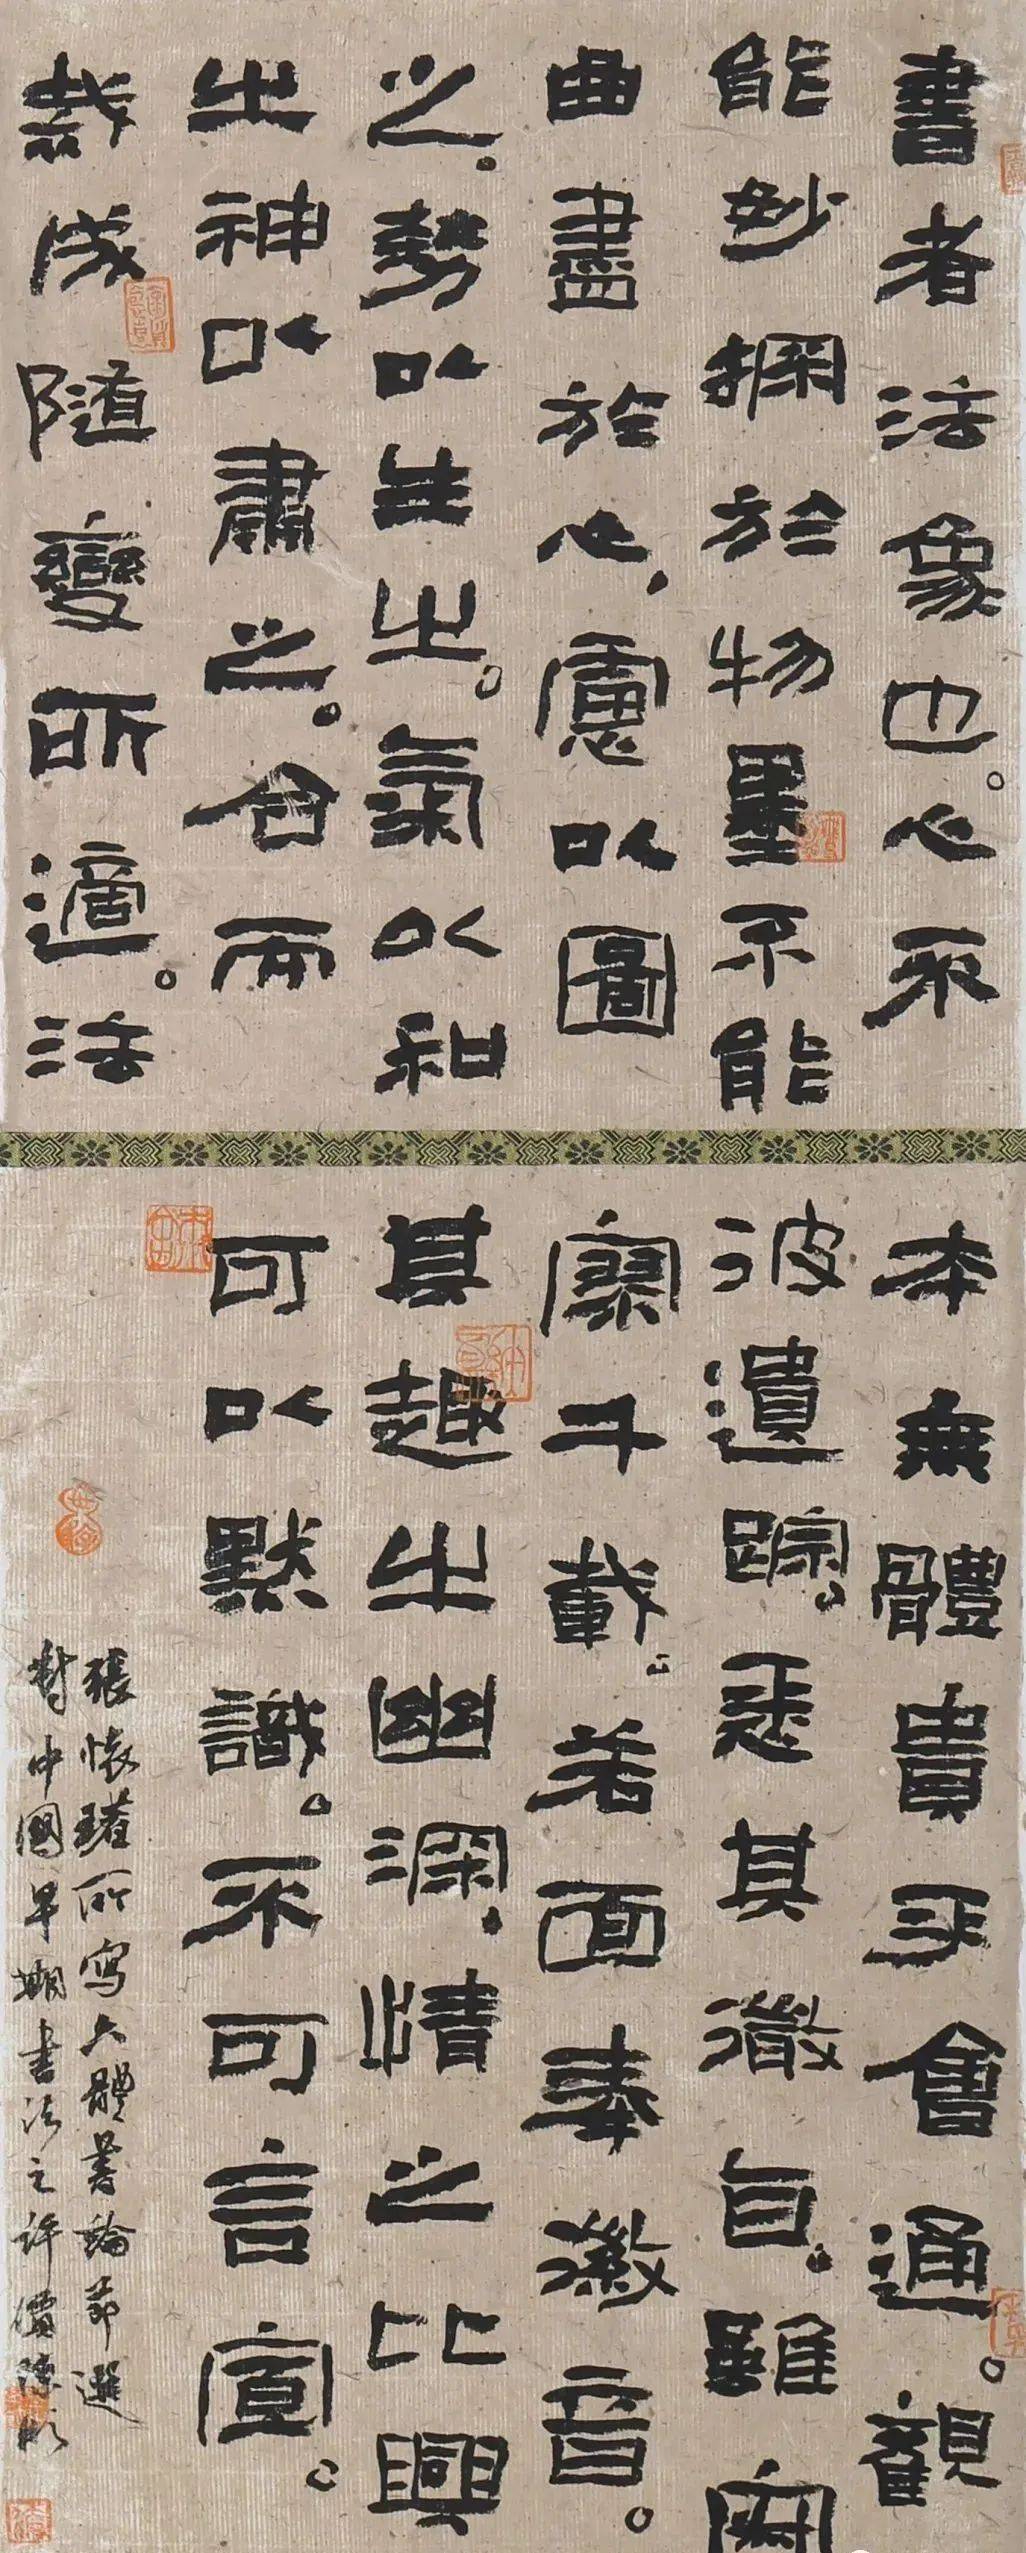 書者法象也。心不
能妙探於物墨不能
曲盡於心，慮以圖
之，勢以生之。氣以和
之神以肅之。合而
裁成隨變所適。法
本無體貴乎會通。觀
彼遺踪。悉其微旨。雖寂
寥千載。若面奉徽音。
其趣之幽深，情之比興
可以默識。不可言宣。
張懷瓘所寫六體書論節選
對中國早期書法之評價